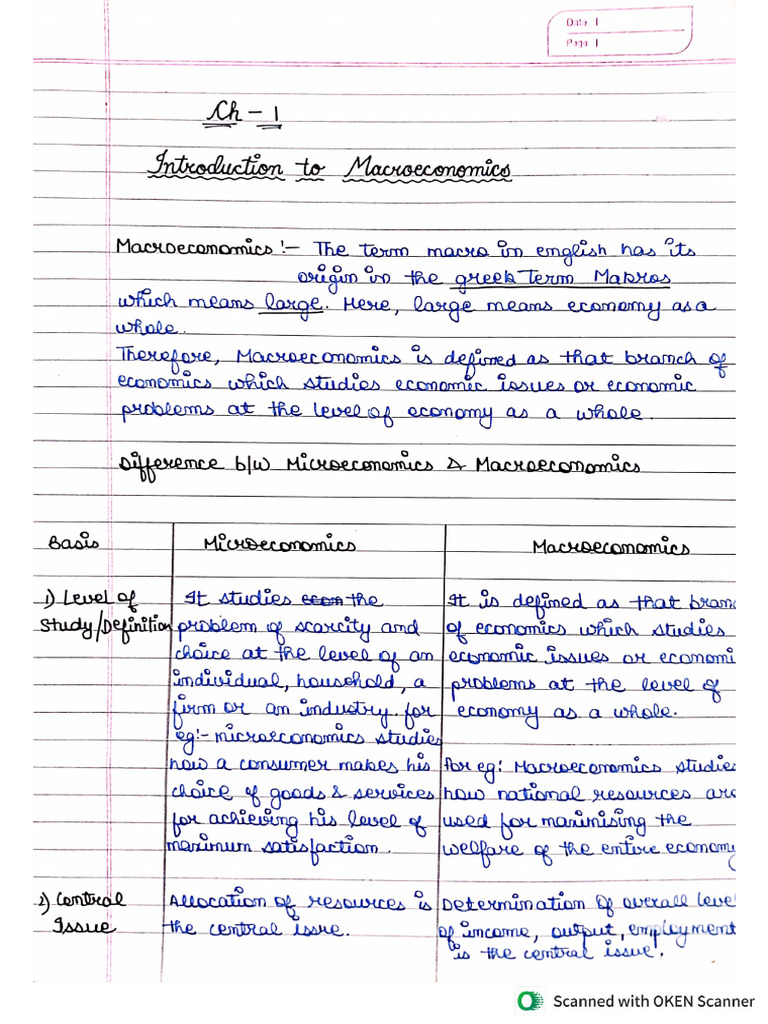 Date 1
Page 1
Ch - 1
Introduction to Macroeconomics
Macroeconomics :- The term macro in english has its
origin in the greek term Makros
which means large. Here, large means economy as a
whole.
Therefore, Macroeconomics is defined as that branch of
economics which studies economic issues or economic
problems at the level of economy as a whole.
Difference b/w Microeconomics & Macroeconomics
Basis Microeconomics Macroeconomics
1) Level of
Study/Definition
It studies econ the
problem of scarcity and
choice at the level of an
individual, household, a
firm or an industry. for
eg:- microeconomics studies
how a consumer makes his
choice of goods & services
for achieving his level of
maximum satisfaction.
It is defined as that branc
of economics which studies
economic issues or economi
problems at the level of
economy as a whole.
for eg: Macroeconomics studies
how national resources are
used for maximising the
welfare of the entire economy
2) Central
Issue
Allocation of resources is
the central issue.
Determination of overall level
of income, output, employment
is the central issue.
Scanned with OKEN Scanner